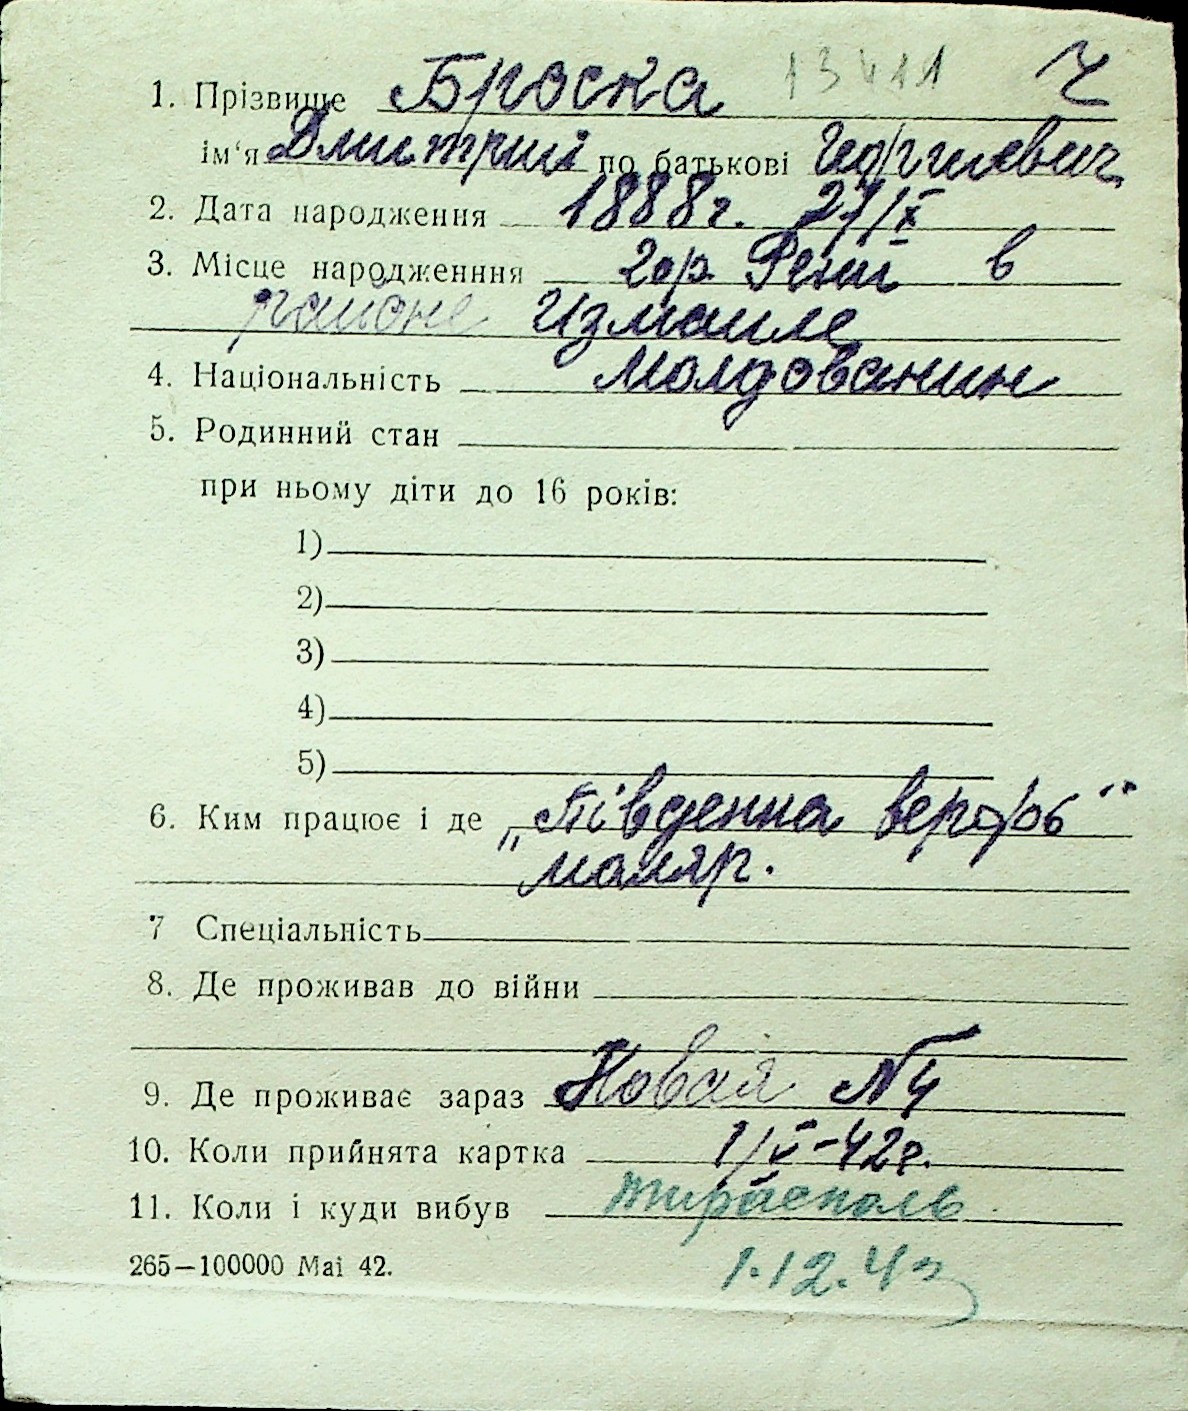 13411 Ч
1. Прізвище Броска
ім'я Дмитрий по батькові Георгиевич
2. Дата народження 1888г. 27/IX
3. Місце народженння гор. Рени в
районе Измаила
4. Національність Молдованин
5. Родинний стан
при ньому діти до 16 років:
1)
2)
3)
4)
5)
6. Ким працює і де „Південна верфь"
маляр.
7 Спеціальність
8. Де проживав до війни
9. Де проживає зараз Новая №4
10. Коли прийнята картка 1/V-42г.
11. Коли і куди вибув тирасполь
265—100000 Mai 42. 1.12.43